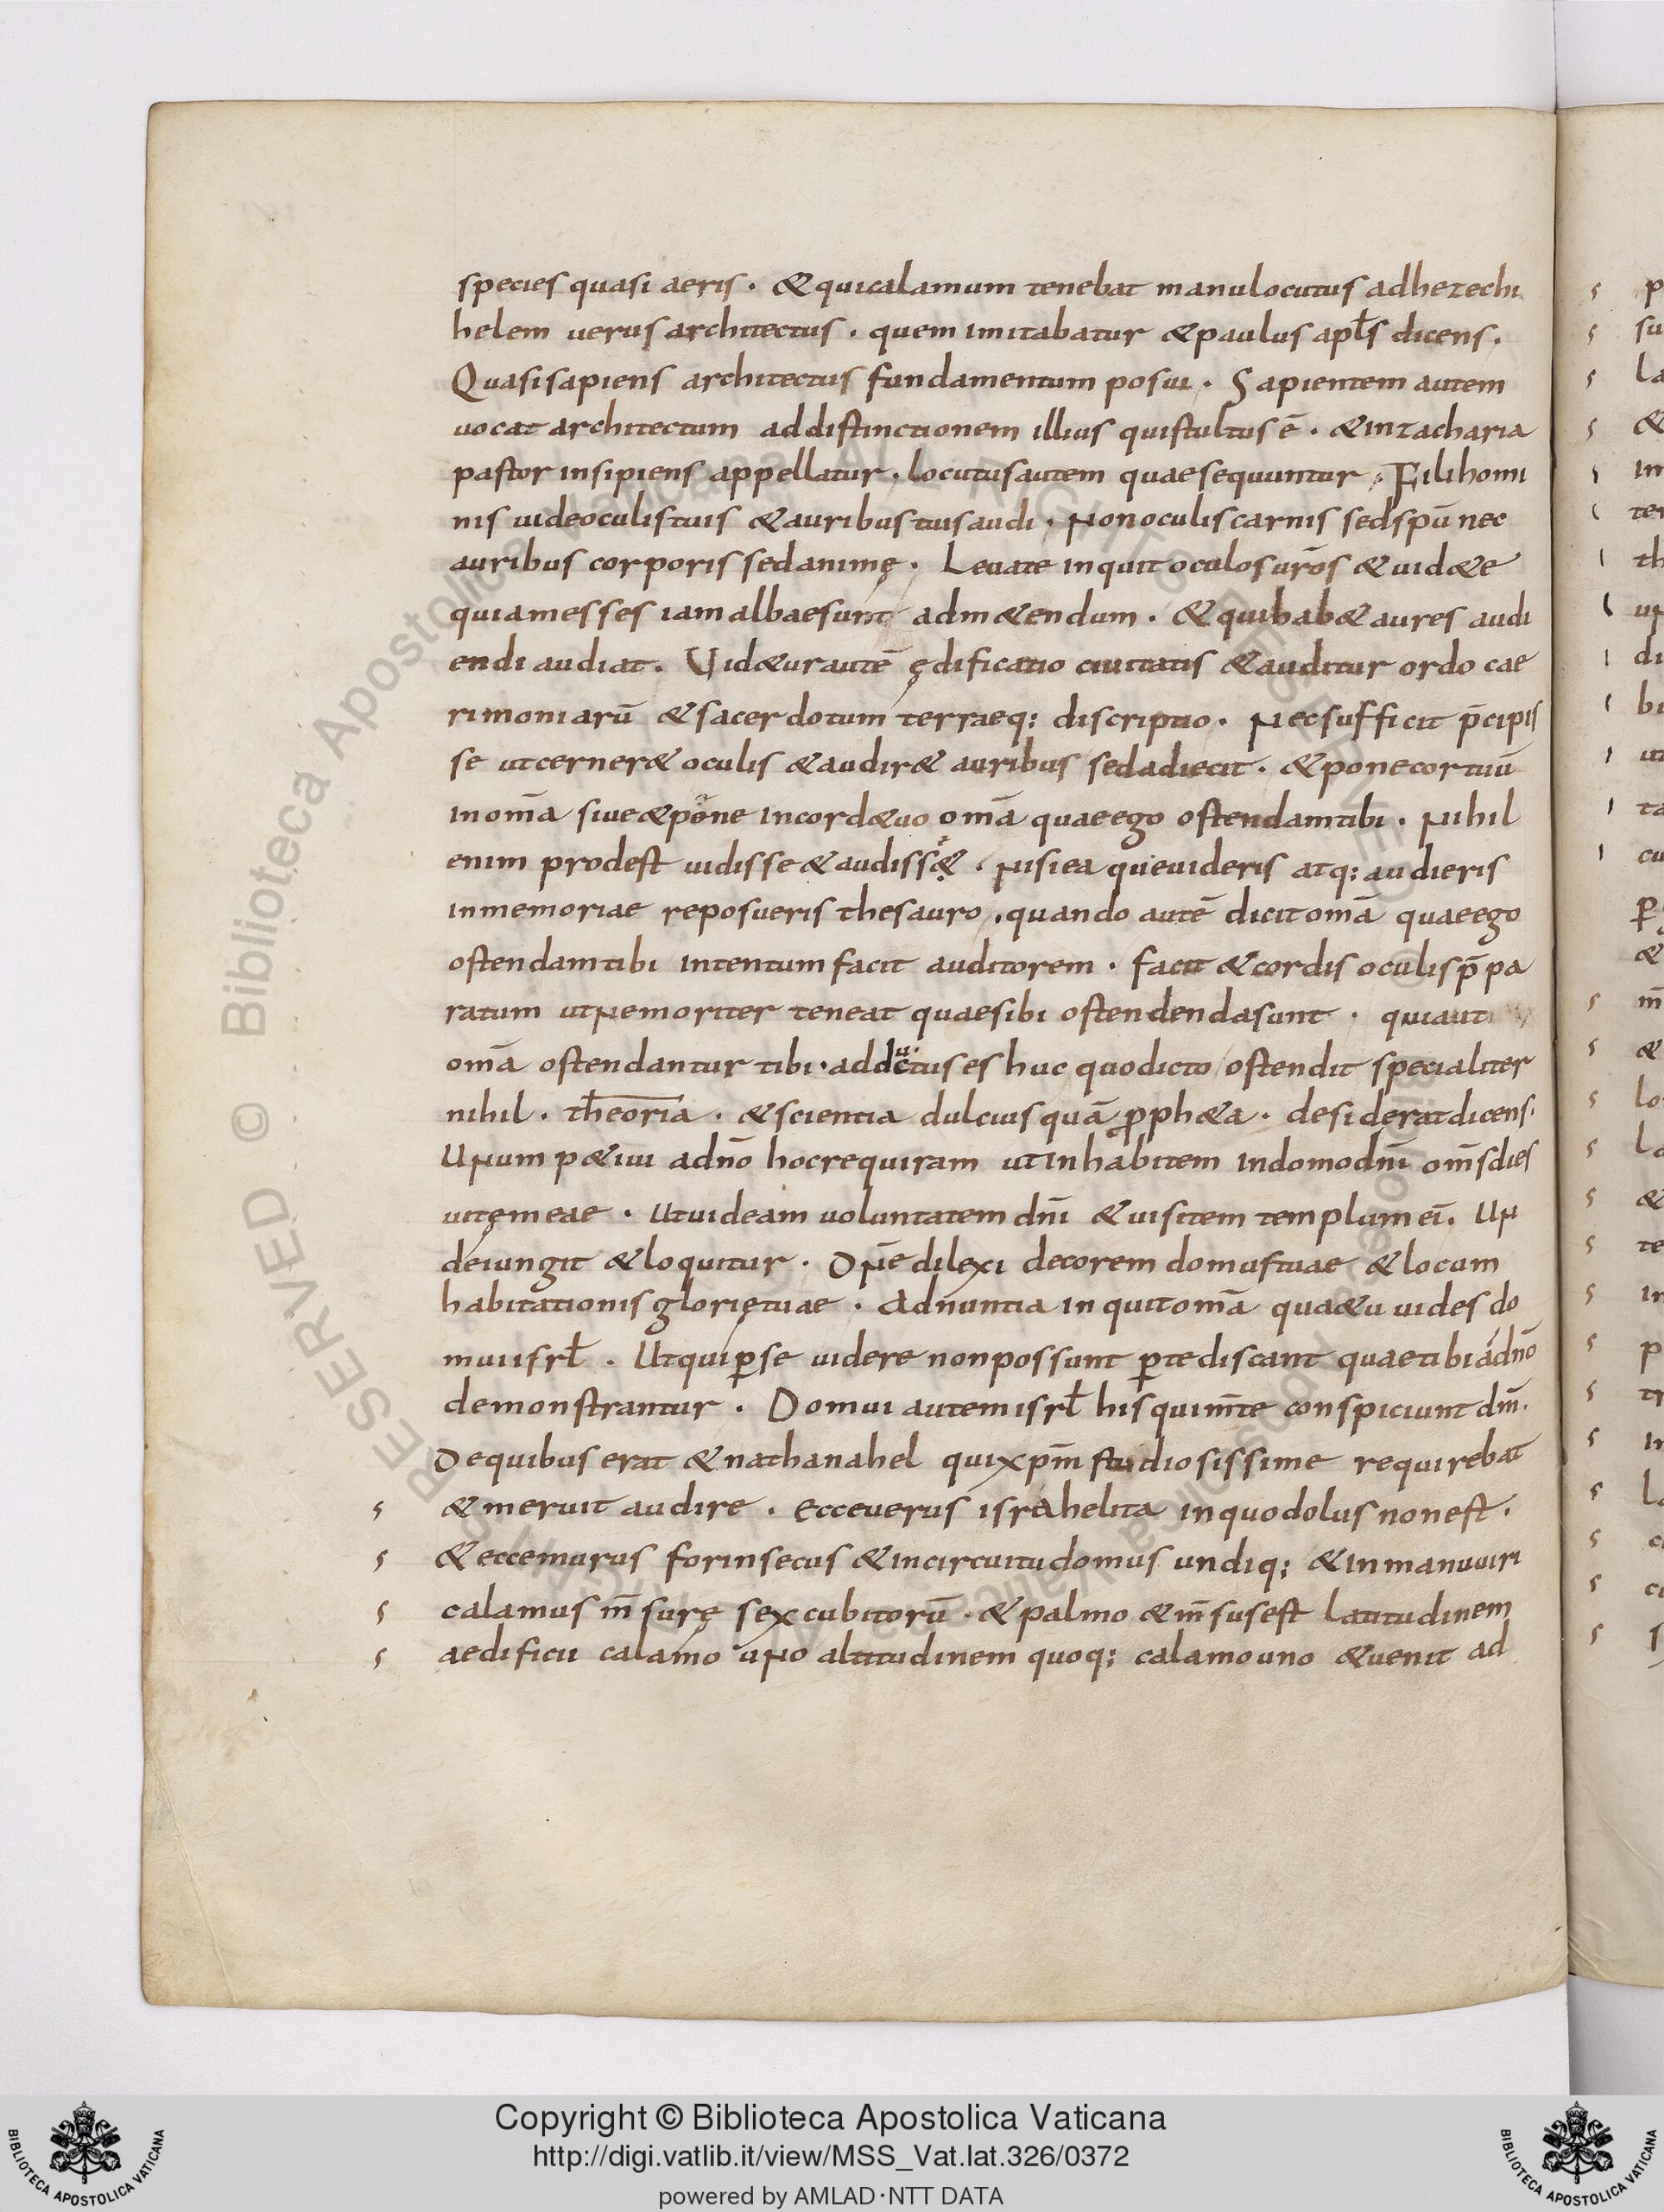 species quasi aeris . & quicalamum tenebat manulocutus adhezechi
helem uerus architectus . quem imitabatur &paulus apłs dicens .
Quasisapiens architectus fundamentum posui . Sapientem autem
uocat architectum addistinctionem illius quistultus ē . &inzacharia
pastor insipiens appellatur . locutusautem quaesequuntur . Filihomi
nis uideoculistuis &auribus tuisaudi . Nonoculiscarnis sedspū nec
auribus corporis sedanimę . Leuate inquit oculosur̄os & uid&e
quiamesses iamalbaesunt adm&endum . & quihab& aures audi
endi audiat . Uid&urautē ędificatio ciuitatis &auditur ordo cae
rimoniarū &sacerdotum terraeq; discriptio . Necsufficit p̄cipis
se utcerner& oculis &audir& auribus sedadiecit . &ponecortuū
inom̄a siue&pone incord&uo om̄a quaeego ostendamtibi . Nihil
enim prodest uidisse&audiss& . Nisiea quęuideris atq; audieris
inmemoriae reposueris thesauro . quando autē dicitom̄a quaeego
ostendamtibi intentumfacit auditorem . facit &cordis oculisp̄pa
ratum utmemoriter teneat quaesibi ostendendasunt . quiaut
om̄a ostendantur tibi . adductuses huc quodicto ostendit specialiter
nihil . theoria . &scientia dulcius quā p̱roph&a . desideratdicens .
Unum p&iui adn̄o hocrequiram utinhabitem indomodn̄i om̄sdies
uitęmeae . Utuideam uoluntatem dn̄i &uisitem templumeī . Un
deiungit &loquitur . Dn̄e dilexi decorem domustuae &locum
habitationisgloriętuae . Adnuntia inquitom̄a qua&u uides do
muiisrł . Utquiꝑse uidere nonpossunt ꝑtediscant quaetibi adn̄o
demonstrantur . Domui autemisrł hisquim̄te conspiciunt dn̄m .
Dequibus erat &nathanahel quixpm̄ studiosissime requirebat
&meruit audire . Ecceuerus israhelita inquodolus nonest .
&eccemurus forinsecus &incircuitudomus undiq; &inmanuuiri
calamus m̄surę sexcubitorū . &palmo &m̄susest Latitudinem
aedificii calamo uno altitudinem quoq; calamouno &uenit ad
Copyright © Biblioteca Apostolica Vaticana
http://digi.vatlib.it/view/MSS_Vat.lat.326/0372
powered by AMLAD·NTT DATA
BIBLIOTECA APOSTOLICA VATICANA
BIBLIOTECA APOSTOLICA VATICANA